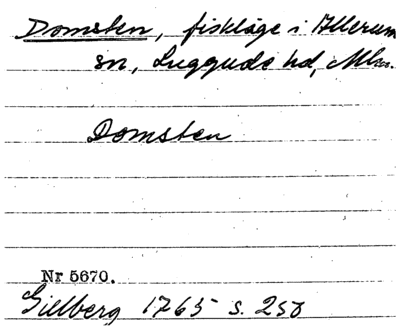 Domsten, fiskläge i Allerum
sn, Luggude hd, Mlm.
Domsten
Nr 5670.
Gillberg 1765 s. 258